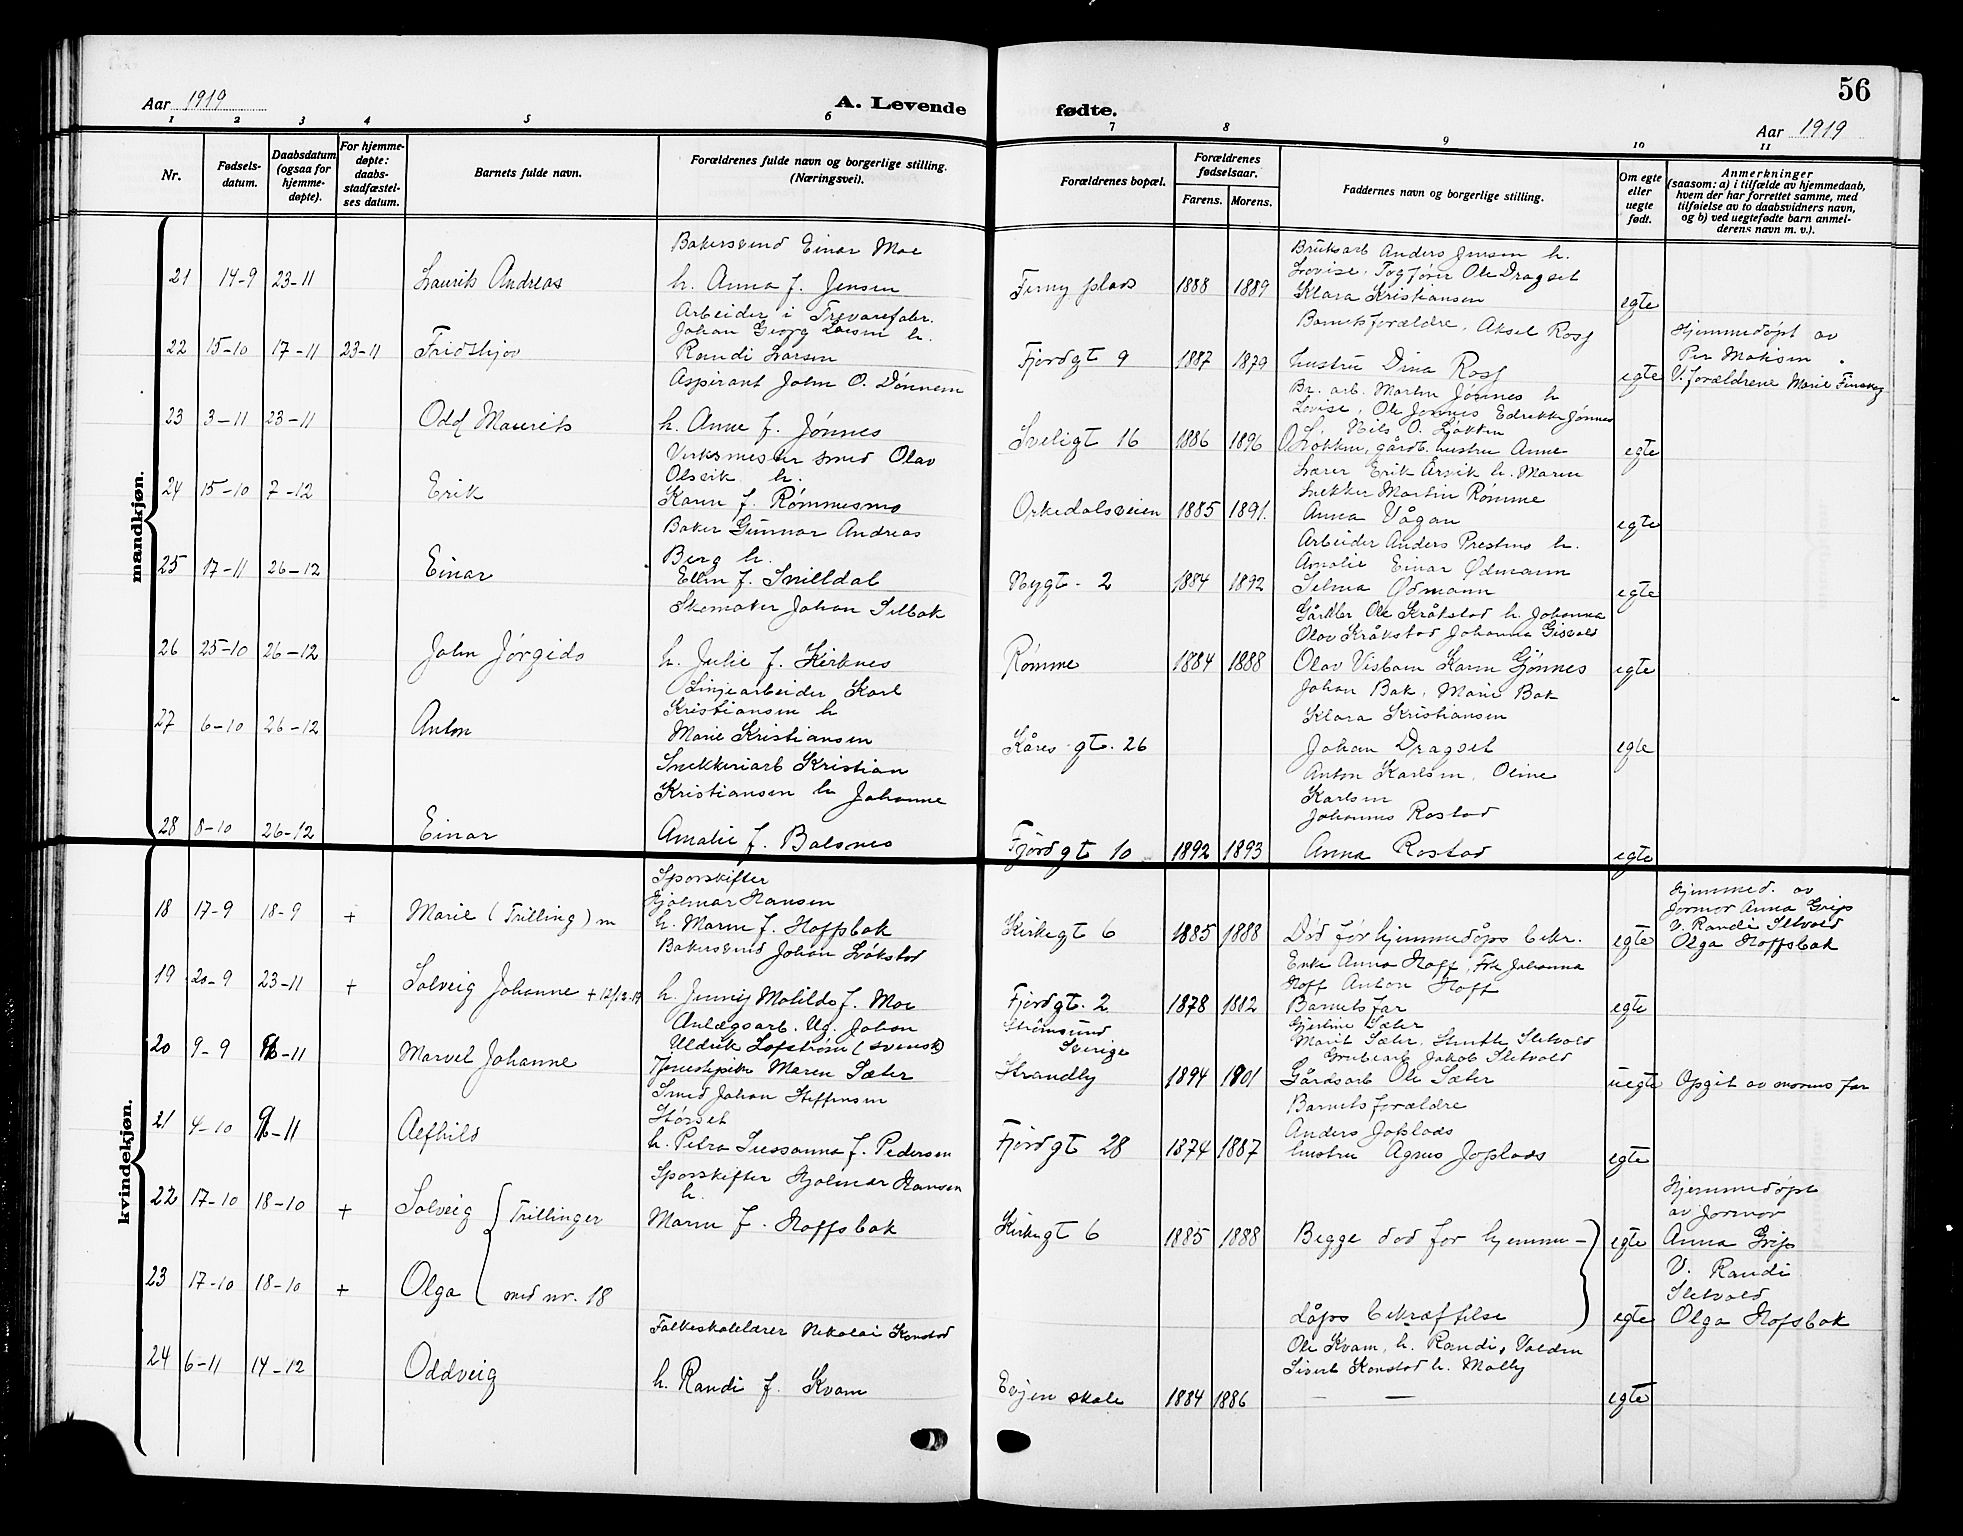 56
Aar 1919
A. Levende fødte.
Aar 1919
1 2 3 4 5 6 7 8 9 10 11
Nr.
Fødsels-
datum.
Daabsdatum
(ogsaa for
hjemme-
døpte).
For hjemme-
døpte:
daabs-
stadfæstel-
ses datum.
Barnets fulde navn.
Forældrenes fulde navn og borgerlige stilling.
(Næringsvei).
Forældrenes bopæl.
Forældrenes
fødselsaar.
Farens. Morens.
Faddernes navn og borgerlige stilling.
Om egte
eller
uegte
født.
Anmerkninger
(saasom: a) i tilfælde av hjemmedaab,
hvem der har forrettet samme, med
tilføielse av to daabsvidners navn,
og b) ved uegtefødte barn anmel-
derens navn m. v.).
mandkjøn.
Bakersvend Einar Moe
Bruksarb Anders Jensen h.
Lovise, Togfører Ole Dragset
21 14-9 23-11 Laurits Andreas h. Anna f. Jensen plads 1888 1889 Klara Kristiansen egte
Arbeider i Trevarefabr.
Johan Georg Larsen h.
Barnets forældre, Aksel Ross
Hjemmedøpt av
22 15-10 17-11 23-11 Fridthjov Randi Larsen Fjordgt 9 1887 1879 hustru Dina Ross egte
Per
V. forældrene Marie
Aspirant John O. Dønnem
Br. arb. Martin Jønnes h
Lovise, Ole Jønnes Jønnes
23 3-11 23-11 Odd Maurits h. Anne f. Jønnes 16 1886 1896 Nils O. Løkken
Løkken, gårdb. hustru Anne egte
Verksmester smed Olav
Olsvik h.
Lærer Erik Ersvik h. Maren
Snekker Martin Rømme
24 15-10 7-12 Erik Karen f. Rømmesmo Orkedalsveien 1885 1891. Anna Vågan egte
Baker Gunnar Andreas
Berg h.
Arbeider Anders Prestmo h.
Amalie Einar Ødmann
25 17-11 26-12 Einar Ellen f. Snilldal Nygt. 2 1884 1892 Selma Ødmann egte
Skomaker Johan Selbak
Ole Kråkstad h. Johanna
Olav Kråkstad Johanna
26 25-10 26-12 John Jørgido h. Julie f. Kirknes Rømme 1884 1888 Olav Karen Gjønnes egte
Linjearbeider Karl
Kristiansen h
Johan Bak, Marie Bak
Klara Kristiansen
27 6-10 26-12 Anton Marie Kristiansen Kåres gt. 26 Johan Dragset egte
Snekkeriarb Kristian
Kristiansen h Johanne
Anton Karlsen, Oline
Karlsen
Johannes Rostad
28 8-10 26-12 Einar Amalie f. Balsnes Fjordgt 10 1892 1893 Anna Rostad egte
kvindekjøn.
Sporskifter
Hjalmar Hansen
Hjemmed. av
Jormor Anna Grip
V. Randi Sletvold
18 17-9 18-9 + Marie (Trilling) m h. Maren f. Hoffsbak Kirkegt 6 1885 1888 Død før hjemmedåps bekr. egte Olga Hoffsbak
Bakersvend Johan Løkstad
Enke Anna Hoff, Frk Johanna
Hoff Anton Hoff
19 20-9 23-11 + Solveig Johanne + 12/12-19 h. Jenny Matilda f. Moe Fjordgt. 2 1878 1882 Barnets far egte
Anlægsarb. Ug. Johan
Uldrik Lofstrøm (svensk)
Strømsund
Sverige
Gjertine Sæter
Marit Sæter, Sletvold
Grubearb Jakob Sletvold
20 9-9 -11 Marvel Johanne Tjenestepike Maren Sæter Strandby 1894 1801 Gårdsarb Ole Sæter uegte Opgit av morens far
Smed Johan Steffensen
Størset
Barnets forældre
Anders Joplads
21 4-10 -11 Aefhild h. Petra Sussanna f. Pedersen Fjordgt 28 1874 1887 hustru Agnes Joplads egte
Sporskifter Hjalmar Hansen
h.
Hjemmedøpt
av Jormor
22 17-10 18-10 + Solveig Trillinger Maren f. Hoffsbak Kirkegt 6 1885 1888 Begge død før hjemme- egte Anna Grip
V. Randi
Sletvold
23 17-10 18-10 + Olga med nr. 18 dåps bekræftelse egte Olga Hofsbak
Folkeskolelærer Nikolai Konstad
Ole Kvam, h. Randi,
Sivert Konstad h. Molly
24 6-11 14-12 Oddveig h. Randi f. Kvam Evjen skole 1884 1886 — — egte